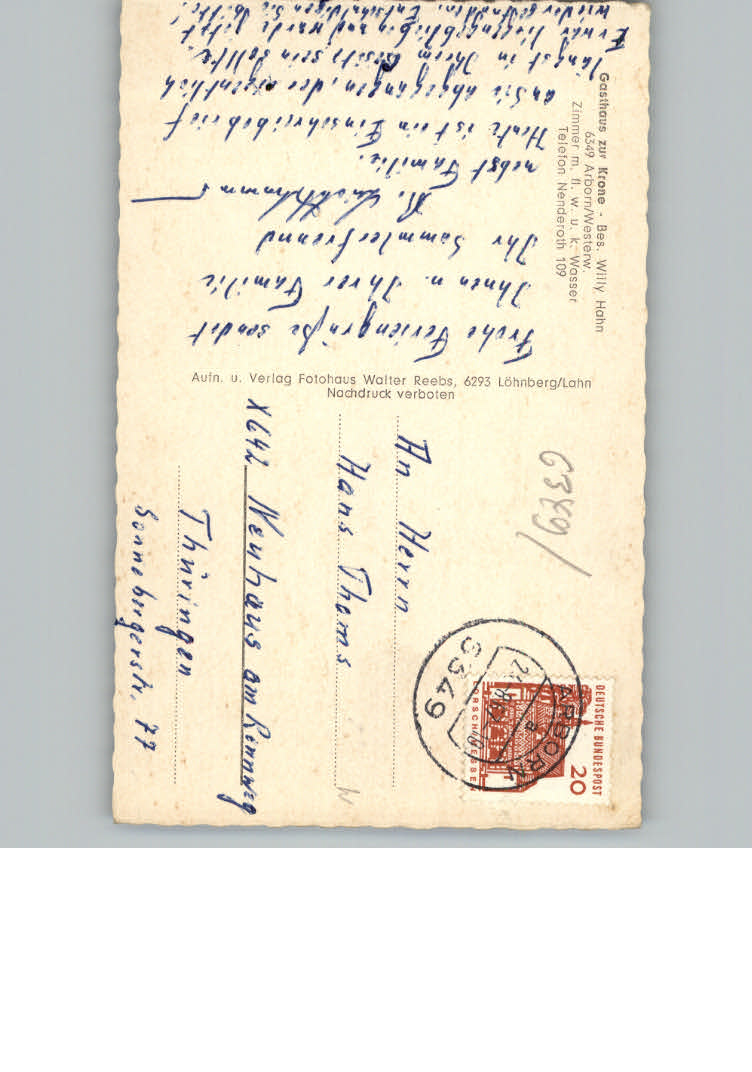 Gasthaus zur Krone - Bes. Willy Hahn
6349 Arborn/Westerw.
Zimmer m. fl. w. u. k. Wasser
Telefon Nenderoth 109
Frohe Feriengrüße sendet
Ihnen u. Ihrer Familie
Ihr Sammlerfreund
nebst Familie.
Heute ist ein Einschreibebrief
an Sie abgegangen, der eigentlich
längst in Ihrem Besitz sein sollte.
Er war liegengeblieben und wurde jetzt
wiedergefunden. Entschuldigen Sie bitte!
Aufn. u. Verlag Fotohaus Walter Reebs, 6293 Löhnberg/Lahn
Nachdruck verboten
An Herrn
Hans Thoms
X642 Neuhaus am Rennweg
Thüringen
Sonnebergerstr. 77
DEUTSCHE BUNDESPOST
20
LORSCH/HESSEN
6349
ARBORN
a